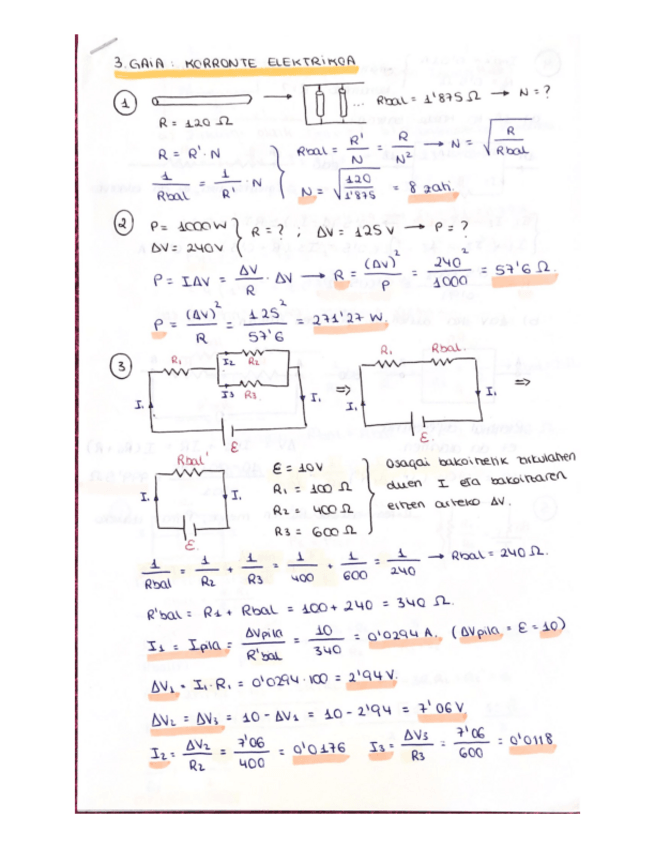 3. GAIA : KORRONTE ELEKTRIKOA
1 → ... Rbal = 1'875 Ω → N = ?
R = 120 Ω
R = R' · N } Rbal = R'/N = R/N² → N = √(R/Rbal)
1/Rbal = 1/R' · N N = √(120/1'875) = 8 zati.
2 P = 1000 W } R = ? ; ΔV = 125 V → P = ?
ΔV = 240 V
P = I ΔV = ΔV/R · ΔV → R = (ΔV)²/P = 240²/1000 = 57'6 Ω.
P = (ΔV)²/R = 125²/57'6 = 271'27 W.
3 R1 I2 R2 I3 R3 I1 I1 E ⇒ R1 Rbal. I1 I1 E. ⇒
Rbal' I1 I1 E.
E = 10 V } Osagai bakoitzetik zirkulatzen
R1 = 100 Ω duen I eta bakoitzaren
R2 = 400 Ω ertzen arteko ΔV.
R3 = 600 Ω
1/Rbal = 1/R2 + 1/R3 = 1/400 + 1/600 = 1/240 → Rbal = 240 Ω.
R'bal = R1 + Rbal = 100 + 240 = 340 Ω.
I1 = Ipila = ΔVpila/R'bal = 10/340 = 0'0294 A. (ΔVpila = E = 10)
ΔV1 = I1 · R1 = 0'0294 · 100 = 2'94 V.
ΔV2 = ΔV3 = 10 - ΔV1 = 10 - 2'94 = 7'06 V
I2 = ΔV2/R2 = 7'06/400 = 0'0176 I3 = ΔV3/R3 = 7'06/600 = 0'0118